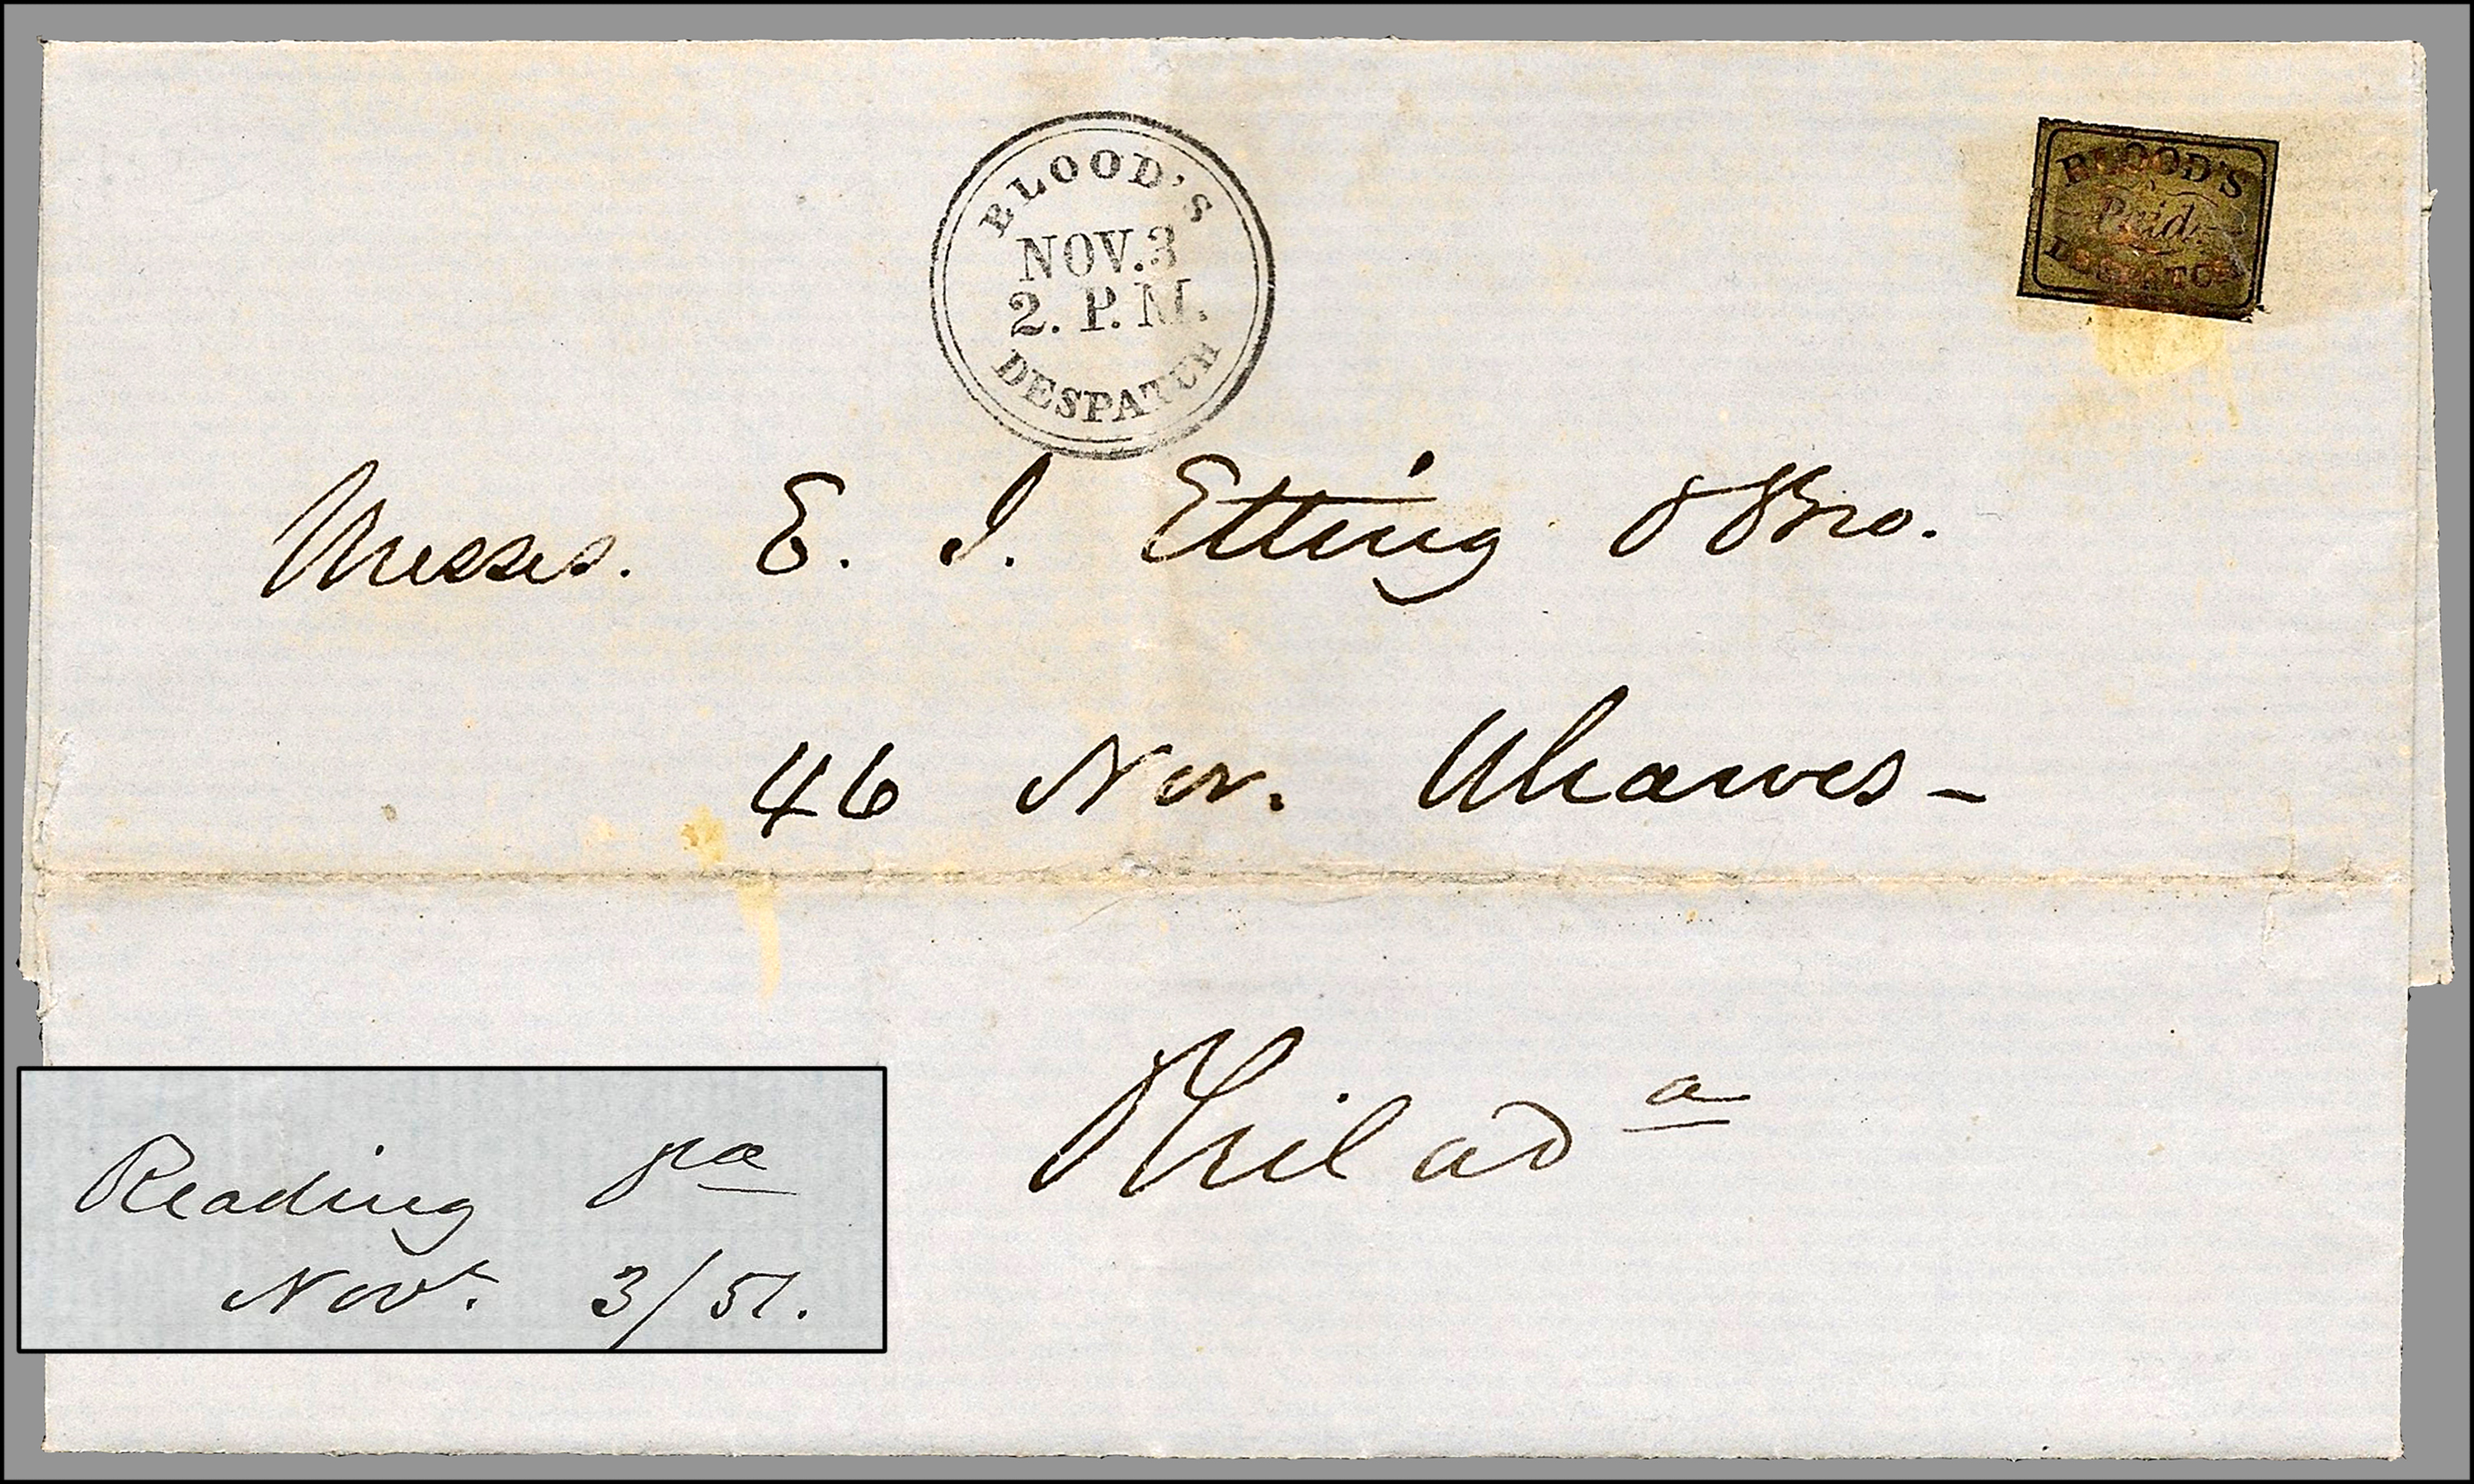 BLOOD'S
NOV. 3
2. P. M.
DESPATCH
BLOOD'S
Paid.
DESPATCH
Messrs. E. J. Etting & Bro.
46 Nor. Wharves -
Philad a
Reading Pa
Nov. 3/51.